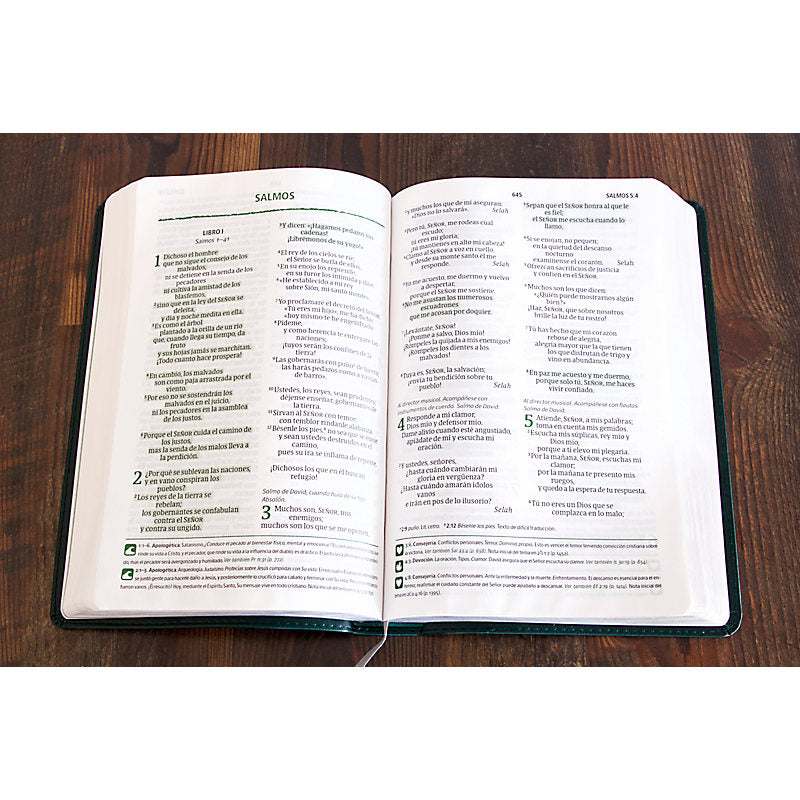 SALMOS
LIBRO I
Salmos 1–41
1 Dichoso el hombre
que no sigue el consejo de los
malvados,
ni se detiene en la senda de los
pecadores
ni cultiva la amistad de los
blasfemos,
sino que en la ley del SEÑOR se
deleita,
y día y noche medita en ella.
Es como el árbol
plantado a la orilla de un río
que, cuando llega su tiempo, da
fruto
y sus hojas jamás se marchitan.
¡Todo cuanto hace prospera!
En cambio, los malvados
son como paja arrastrada por el
viento.
Por eso no se sostendrán los
malvados en el juicio,
ni los pecadores en la asamblea
de los justos.
Porque el SEÑOR cuida el camino de
los justos,
mas la senda de los malos lleva a
la perdición.
2 ¿Por qué se sublevan las naciones,
y en vano conspiran los
pueblos?
Los reyes de la tierra se
rebelan;
los gobernantes se confabulan
contra el SEÑOR
y contra su ungido.
Y dicen: «¡Hagamos pedazos sus
cadenas!
¡Librémonos de su yugo!»
El rey de los cielos se ríe;
el Señor se burla de ellos.
En su enojo los reprende,
en su furor los intimida y dice:
«He establecido a mi rey
sobre Sión, mi santo monte».
Yo proclamaré el decreto del SEÑOR:
«Tú eres mi hijo», me ha dicho;
«hoy mismo te he engendrado.
Pídeme,
y como herencia te entregaré las
naciones;
¡tuyos serán los confines de la
tierra!
Las gobernarás con puño de hierro;
las harás pedazos como a vasijas
de barro».
Ustedes, los reyes, sean prudentes;
déjense enseñar, gobernantes de
la tierra.
Sirvan al SEÑOR con temor;
con temblor ríndanle alabanza.
Bésenle los pies, no sea que se enoje
y sean ustedes destruidos en el
camino,
pues su ira se inflama de repente.
¡Dichosos los que en él buscan
refugio!
Salmo de David, cuando huía de su hijo
Absalón.
3 Muchos son, SEÑOR, mis
enemigos;
muchos son los que se me oponen,
1:1–6. Apologética. Satanismo. ¿Conduce el pecado al bienestar físico, mental y emocional?
rinde su vida a Cristo, y el pecador, que rinde su vida a la influencia del diablo, es drástico.
do, mas el pecador será avergonzado y humillado. Ver también Pr 11:31 (p. 772).
2:1–3. Apologética. Arqueología. Judaísmo. Profecías sobre Jesús cumplidas con Su vida.
se juntó gente para hacerle daño a Jesús, y posteriormente lo crucificó para cabalto y terminar con Su
fueron vanos. ¡Él resucitó! Hoy, mediante el Espíritu Santo, Su mensaje vive en todo cristiano. Nota inicial
645
SALMOS 5:4
y muchos los que de mí aseguran:
«Dios no lo salvará». Selah
Pero tú, SEÑOR, me rodeas cual
escudo;
tú eres mi gloria;
¡tú mantienes en alto mi cabeza!
Clamo al SEÑOR a voz en cuello,
y desde su monte santo él me
responde. Selah
Yo me acuesto, me duermo y vuelvo
a despertar,
porque el SEÑOR me sostiene.
No me asustan los numerosos
escuadrones
que me acosan por doquier.
¡Levántate, SEÑOR!
¡Ponme a salvo, Dios mío!
¡Rómpeles la quijada a mis enemigos!
¡Rómpeles los dientes a los
malvados!
Tuya es, SEÑOR, la salvación;
¡envía tu bendición sobre tu
pueblo! Selah
Al director musical. Acompáñese con
instrumentos de cuerda. Salmo de David.
4 Responde a mi clamor,
Dios mío y defensor mío.
Dame alivio cuando esté angustiado,
apiádate de mí y escucha mi
oración.
Y ustedes, señores,
¿hasta cuándo cambiarán mi
gloria en vergüenza?
¿Hasta cuándo amarán ídolos
vanos
e irán en pos de lo ilusorio?
Selah
Sepan que el SEÑOR honra al que le
es fiel;
el SEÑOR me escucha cuando lo
llamo.
Si se enojan, no pequen;
en la quietud del descanso
nocturno
examínense el corazón. Selah
Ofrezcan sacrificios de justicia
y confíen en el SEÑOR.
Muchos son los que dicen:
«¿Quién puede mostrarnos algún
bien?»
¡Haz, SEÑOR, que sobre nosotros
brille la luz de tu rostro!
Tú has hecho que mi corazón
rebose de alegría,
alegría mayor que la que tienen
los que disfrutan de trigo y
vino en abundancia.
En paz me acuesto y me duermo,
porque solo tú, SEÑOR, me haces
vivir confiado.
Al director musical. Acompáñese con flautas.
Salmo de David.
5 Atiende, SEÑOR, a mis palabras;
toma en cuenta mis gemidos.
Escucha mis súplicas, rey mío y
Dios mío,
porque a ti elevo mi plegaria.
Por la mañana, SEÑOR, escuchas mi
clamor;
por la mañana te presento mis
ruegos,
y quedo a la espera de tu respuesta.
Tú no eres un Dios que se
complazca en lo malo;
2:9 puño. Lit. cetro. 2:12 Bésenle los pies. Texto de difícil traducción.
3:6. Consejería. Conflictos personales. Temor. Dominio propio. Esto es vencer el temor teniendo convicción cristiana sobre
victoria. Ver también Sal 23:4 (p. 658). Nota inicial del tema en 2Ti 1:7 (p. 1454).
4:3. Devoción. La oración, Tipos. Clamor. David asegura que el Señor escucha su clamor. Ver también Is 30:19 (p. 854).
4:8. Consejería. Conflictos personales. Ante la enfermedad y la muerte. Enfrentamiento. El descanso es esencial para el en-
reafirmar el cuidado constante del Señor puede ayudar a descansar. Ver también Ef 2:19 (p. 1410). Nota inicial del
tema en 2Co 4:16 (p. 1395).